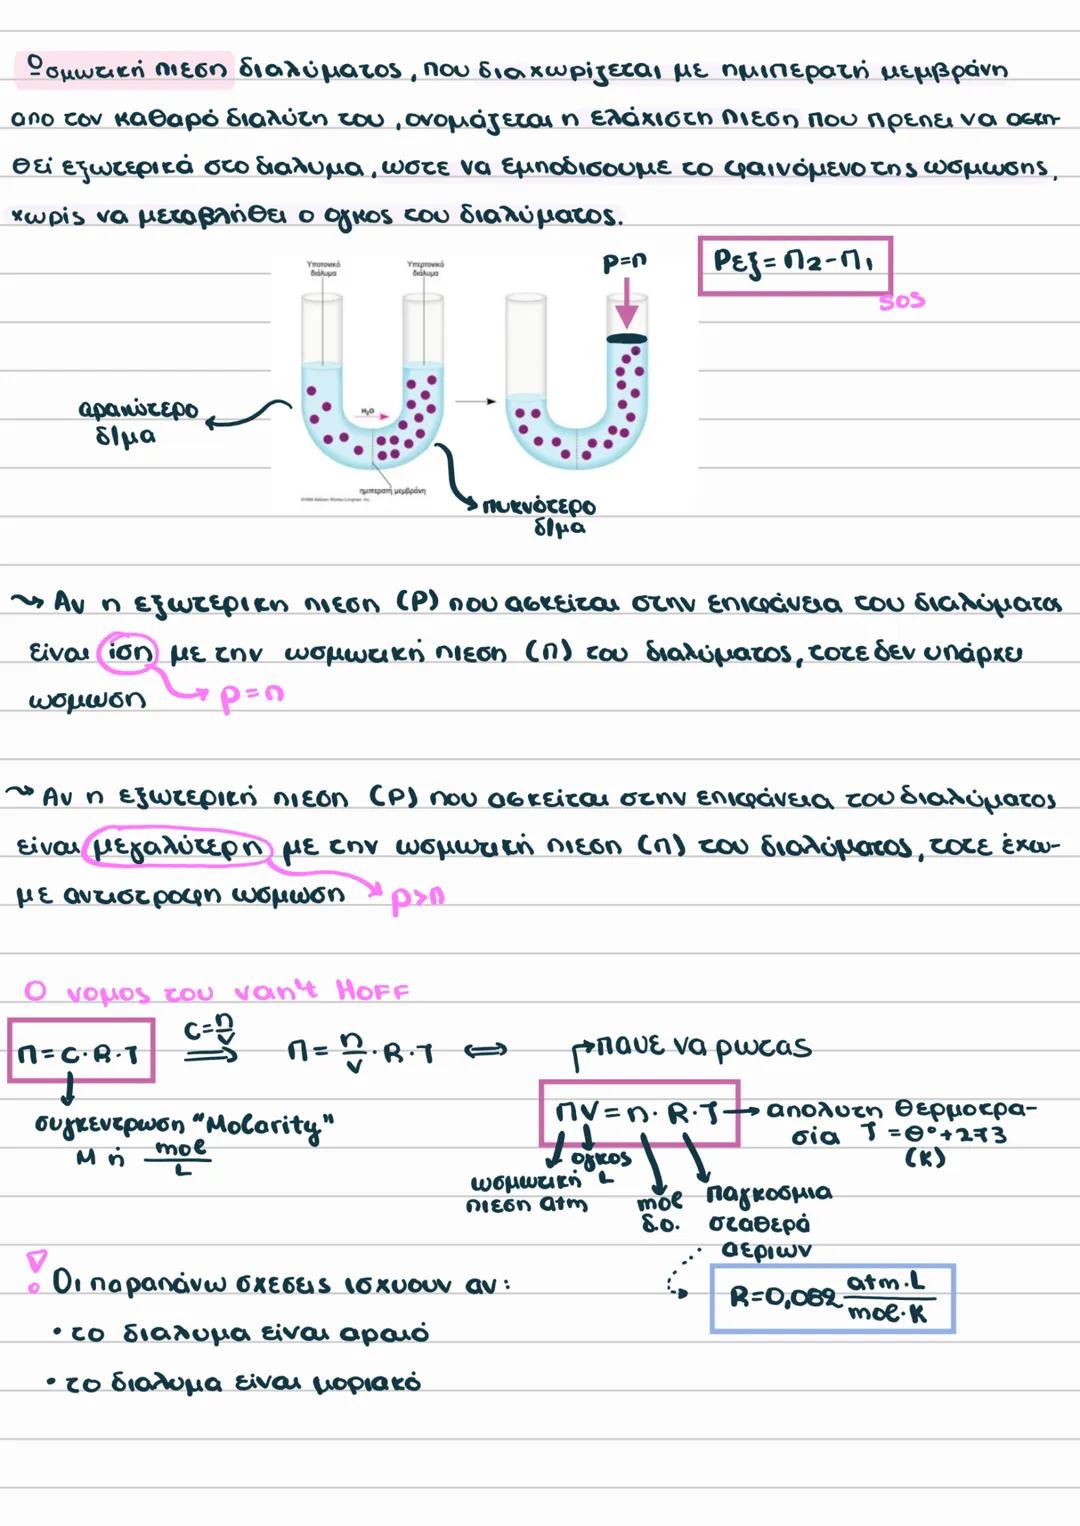 Ωσμωτική πιεση διαλύματος, που διαχωρίζεται με ημιπερατή μεμβράνη
απο τον καθαρό διαλύτη του, ονομάζεται η ελάχιστη πιεση που πρεπει να ασκη-
θεί εξωτερικά στο διαλυμα, ωστε να εμποδισουμε το φαινόμενο της ωσμωσης,
χωρίς να μεταβληθει ο ογκος του διαλύματος.
Υποτονικό διάλυμα
Υπερτονικό διάλυμα
P=Π
Pεξ=Π2-Π1
SOS
αραιώτερο
δ/μα
H₂O
ημιπερατή μεμβράνη
πυκνότερο
δ/μα
Αν η εξωτερικη πιεση (P) που ασκείται στην επιφάνεια του διαλύματος
είναι ίση με την ωσμωτική πιεση (Π) του διαλύματος, τοτε δεν υπάρχει
ωσμωση
P=Π
Αν η εξωτερική πιεση (P) που ασκείται στην επιφάνεια του διαλύματος
είναι μεγαλύτερη με την ωσμωτική πιεση (Π) του διαλύματος, τοτε έχου-
με αντιστροφη ωσμωση
P>Π
Ο νομος του van't HOFF
Π=C·R·T
C=n/V
⇒
Π=n/V·R·T ⇔
παυε να ρωτας
ΠV=n·R·T
απολυτη θερμοκρα-
σία T=θ°+273
(K)
συγκεντρωση "Molarity"
M ή mol/L
ωσμωτική
πιεση atm
ογκος
L
mol
δ.ο.
παγκοσμια
σταθερά
αεριων
R=0,082 atm·L/mol·K
! Οι παραπάνω σχεσεις ισχυουν αν:
• το διαλυμα είναι αραιό
• το διαλυμα είναι μοριακό